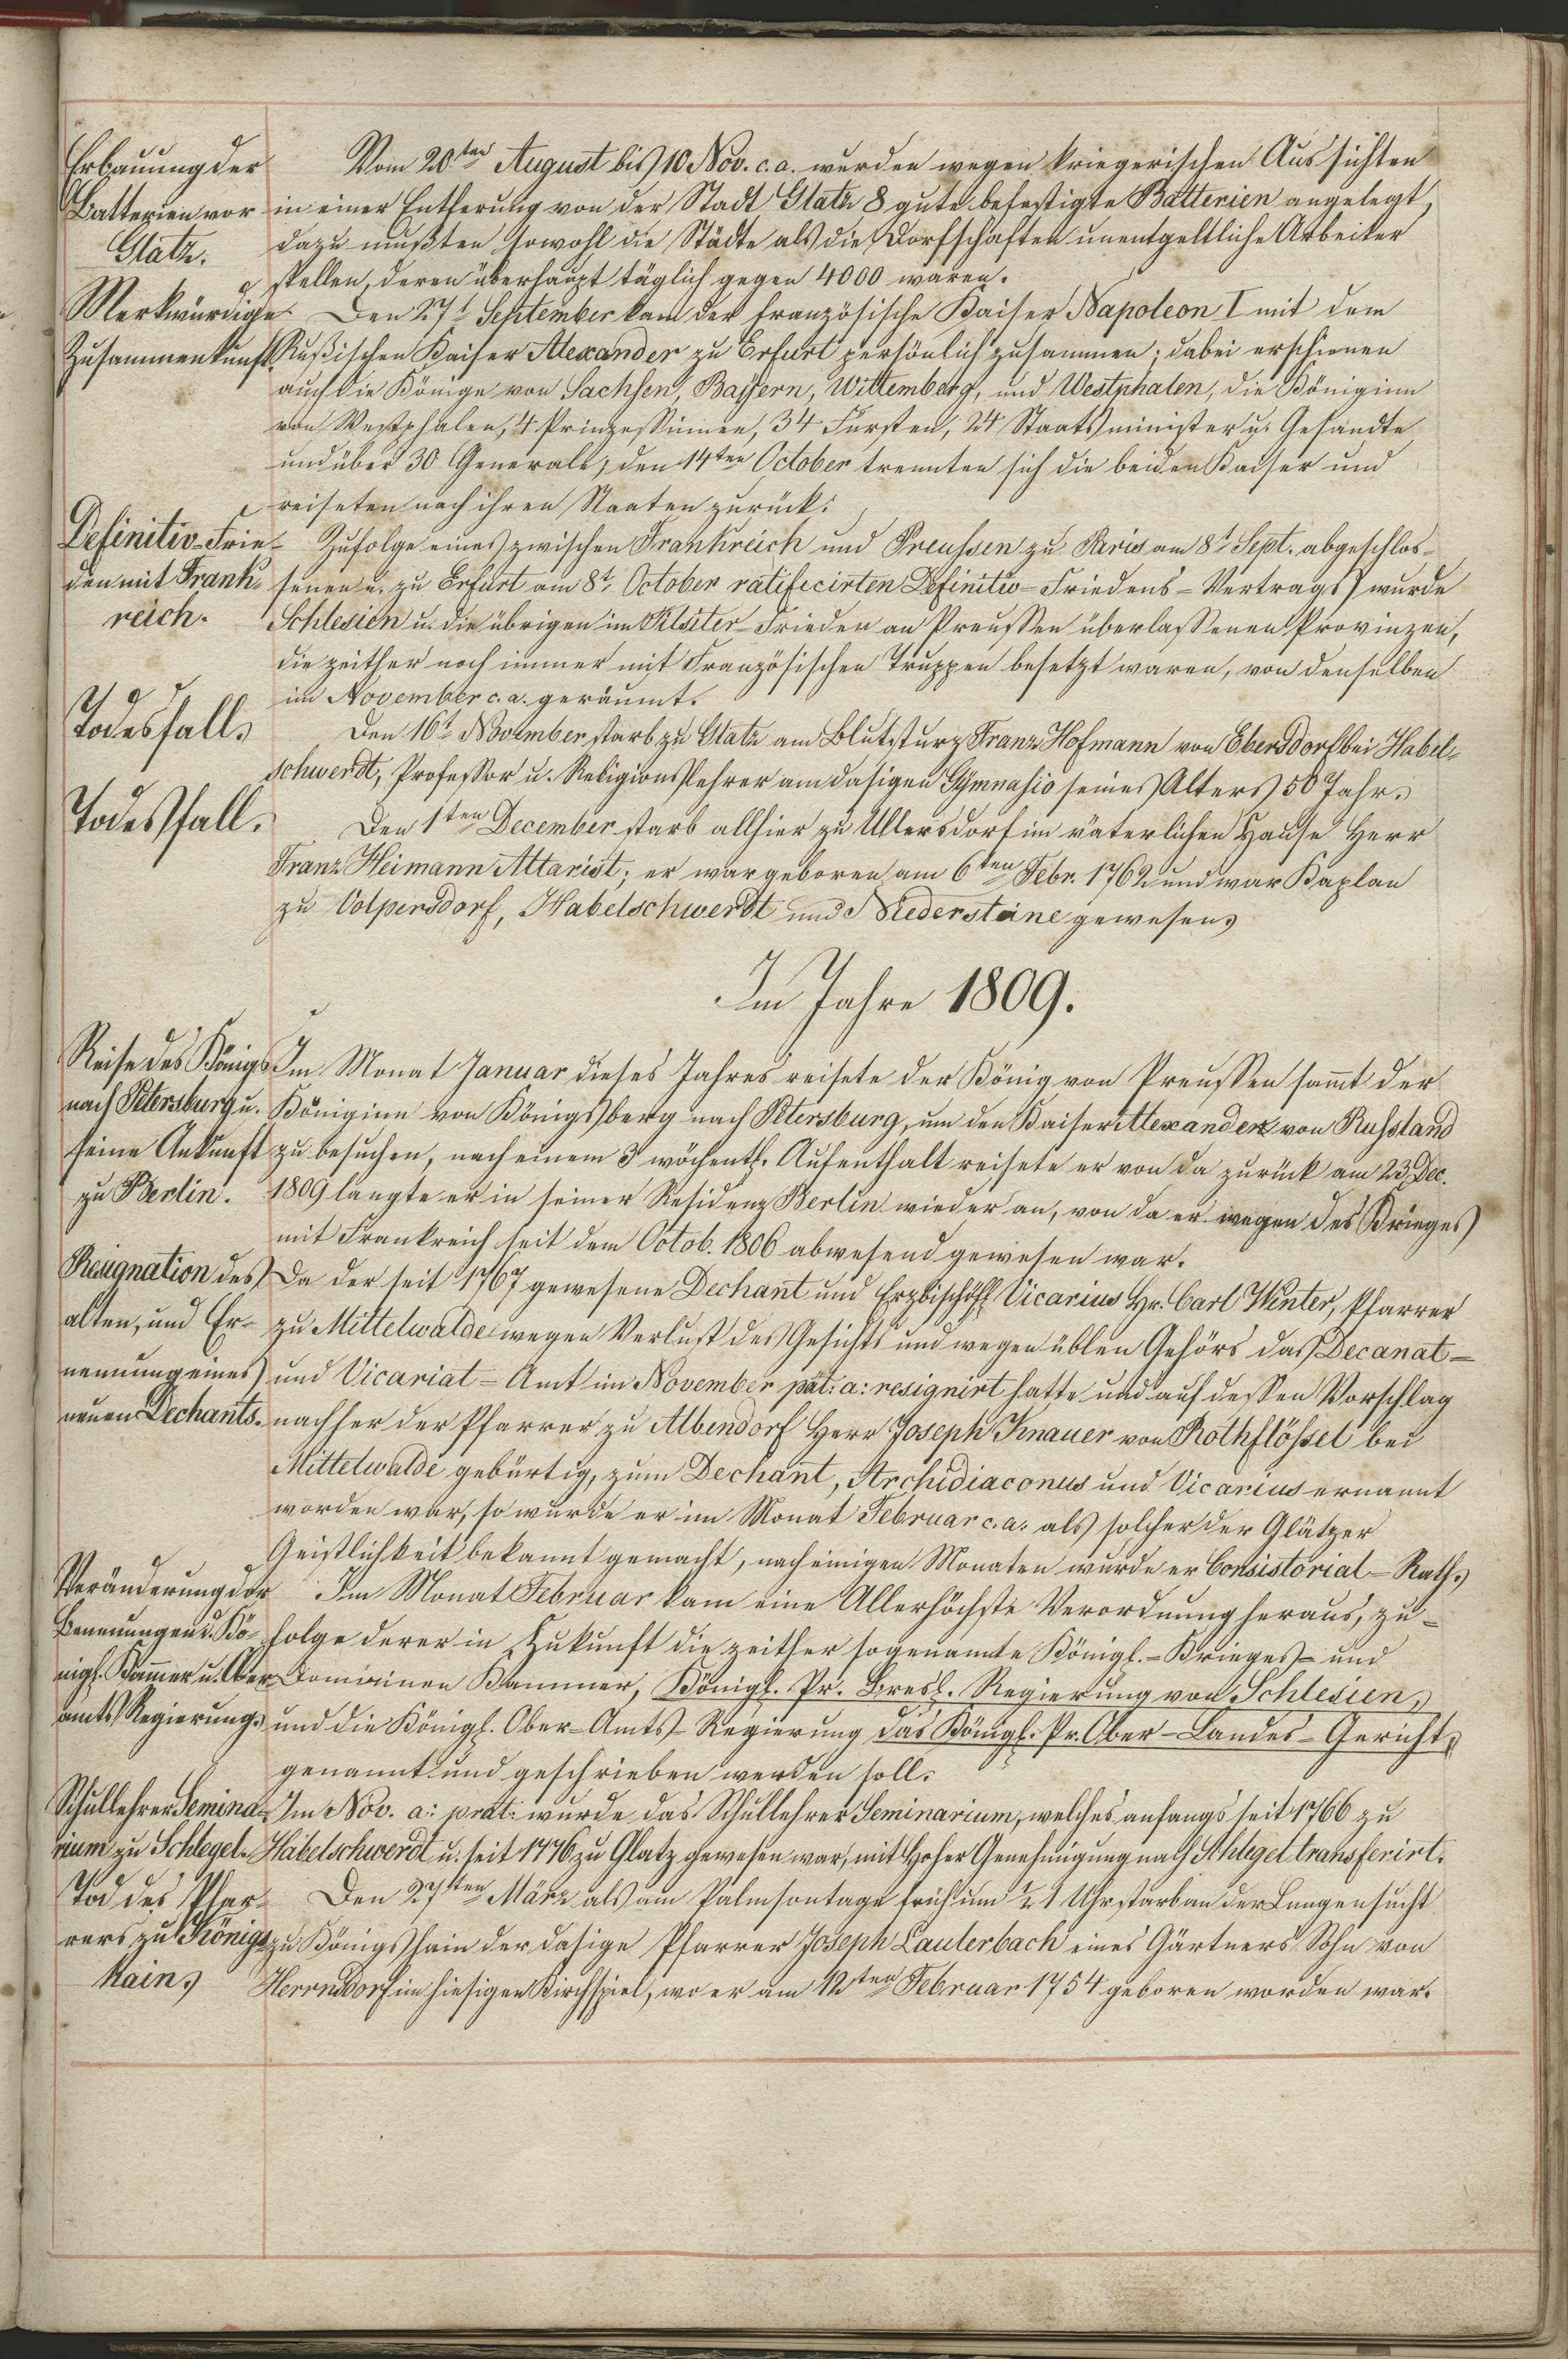 Erbauung der
Batterien vor
Glatz.
Vom 20ten August bis 10 Nov. c. a. wurden wegen kriegerischen Aussichten
in einer Entferung von der Stadt Glatz 8 gute befestigte Batterien angelegt,
dazu mußten sowohl die Städte als die Dorfschaften unentgeltliche Arbeiter
stellen, deren überhaupt täglich gegen 4000 waren.
Merkwürdige
Zusammenkunft.
Den 27t September kam der französische Kaiser Napoleon I mit dem
Rußischen Kaiser Alexander zu Erfurt persönlich zusammen; dabei erschienen
auch die Könige von Sachsen, Bayern, Wittemberg, und Westphalen, die Königinn
von Westphalen, 4 Prinzessinnen, 34 Fürsten, 24 Staatsminister u. Gesandte
und über 30 Generale; den 14ten October trennten sich die beiden Kaiser und
reiseten nach ihren Staaten zurück.
Definitiv-Frie-
den mit Frank-
reich.
Zufolge eines zwischen Frankreich und Preussen zu Paris am 8t Sept. abgeschlos-
senen u. zu Erfurt am 8t October ratificirten Definitiv-Friedens-Vertrags wurde
Schlesien u. die übrigen im Tilsiter-Frieden an Preussen überlassenen Provinzen,
die zeither noch immer mit Französischen Truppen besetzt waren, von denselben
im November c. a. geräumt.
Todesfall.
Den 16t November starb zu Glatz am Blutsturz Franz Hofmann von Ebersdorf bei Habel-
schwerdt, Professor u. Religionslehrer am dasigen Gymnasio seines Alters 50 Jahr.
Todesfall.
Den 1ten December starb allhier zu Ullersdorf im väterlichen Hause Herr
Franz Heimann Altarist; er war geboren am 6ten Febr. 1762 und war Kaplan
zu Volpersdorf, Habelschwerdt und Niedersteine gewesen.
Im Jahre 1809.
Reise des Königs
nach Petersburg u.
seine Ankunft
zu Berlin.
Im Monat Januar dieses Jahres reisete der König von Preussen samt der
Königinn von Königsberg nach Petersburg, um den Kaiser Alexander von Russland
zu besuchen, nach einem 3 wöchentl. Aufenthalt reisete er von da zurück am 23 Dec.
1809 langte er in seiner Residenz Berlin wieder an, von da er wegen des Krieges
mit Frankreich seit dem Octob. 1806 abwesend gewesen war.
Resignation des
alten, und Er-
nennung eines
neuen Dechants.
Da der seit 1767 gewesene Dechant und Erzbischöfl Vicarius Hr. Carl Winter, Pfarrer
zu Mittelwalde wegen Verlust des Gesichts und wegen üblen Gehörs das Decanat-
und Vicariat-Amt im November prät: a: resignirt hatte und auf dessen Vorschlag
nachher der Pfarrer zu Albendorf Herr Joseph Knauer von Rothflössel bei
Mittelwalde gebürtig, zum Dechant, Archidiaconus und Vicarius ernannt
worden war, so wurde er im Monat Februar c. a. als solcher der Glätzer
Geistlichkeit bekannt gemacht, nach einigen Monaten wurde er Consistorial-Rath.
Veränderung der
Benennungen d. Kö-
nigl. Kammer u. Ober-
amts Regierung.
Im Monat Februar kam eine Allerhöchste Verordnung heraus, zu-
folge derer in Zukunft die zeither sogenannte Königl.-Krieges- und
Domainen Kammer, Königl. Pr. Bresl. Regierung von Schlesien,
und die Königl. Ober-Amts-Regierung das Königl. Pr. Ober-Landes-Gericht,
genannt und geschrieben werden soll.
Schullehrer Semina-
rium zu Schlegel.
Im Nov. a: prät: wurde das Schullehrer Seminarium, welches anfangs seit 1766 zu
Habelschwerdt u. seit 1776 zu Glatz gewesen war, mit Hoher Genehmigung nach Schlegel transferirt.
Tod des Pfar-
rers zu Königs-
hain.
Den 27ten März als am Palmsontage früh um 1 Uhr starb an der Lungensucht
zu Königshain der dasige Pfarrer Joseph Lauterbach eines Gärtners Sohn von
Herrnsdorf im hiesigen Kirchspiel, wo er am 12ten Februar 1754 geboren worden war.